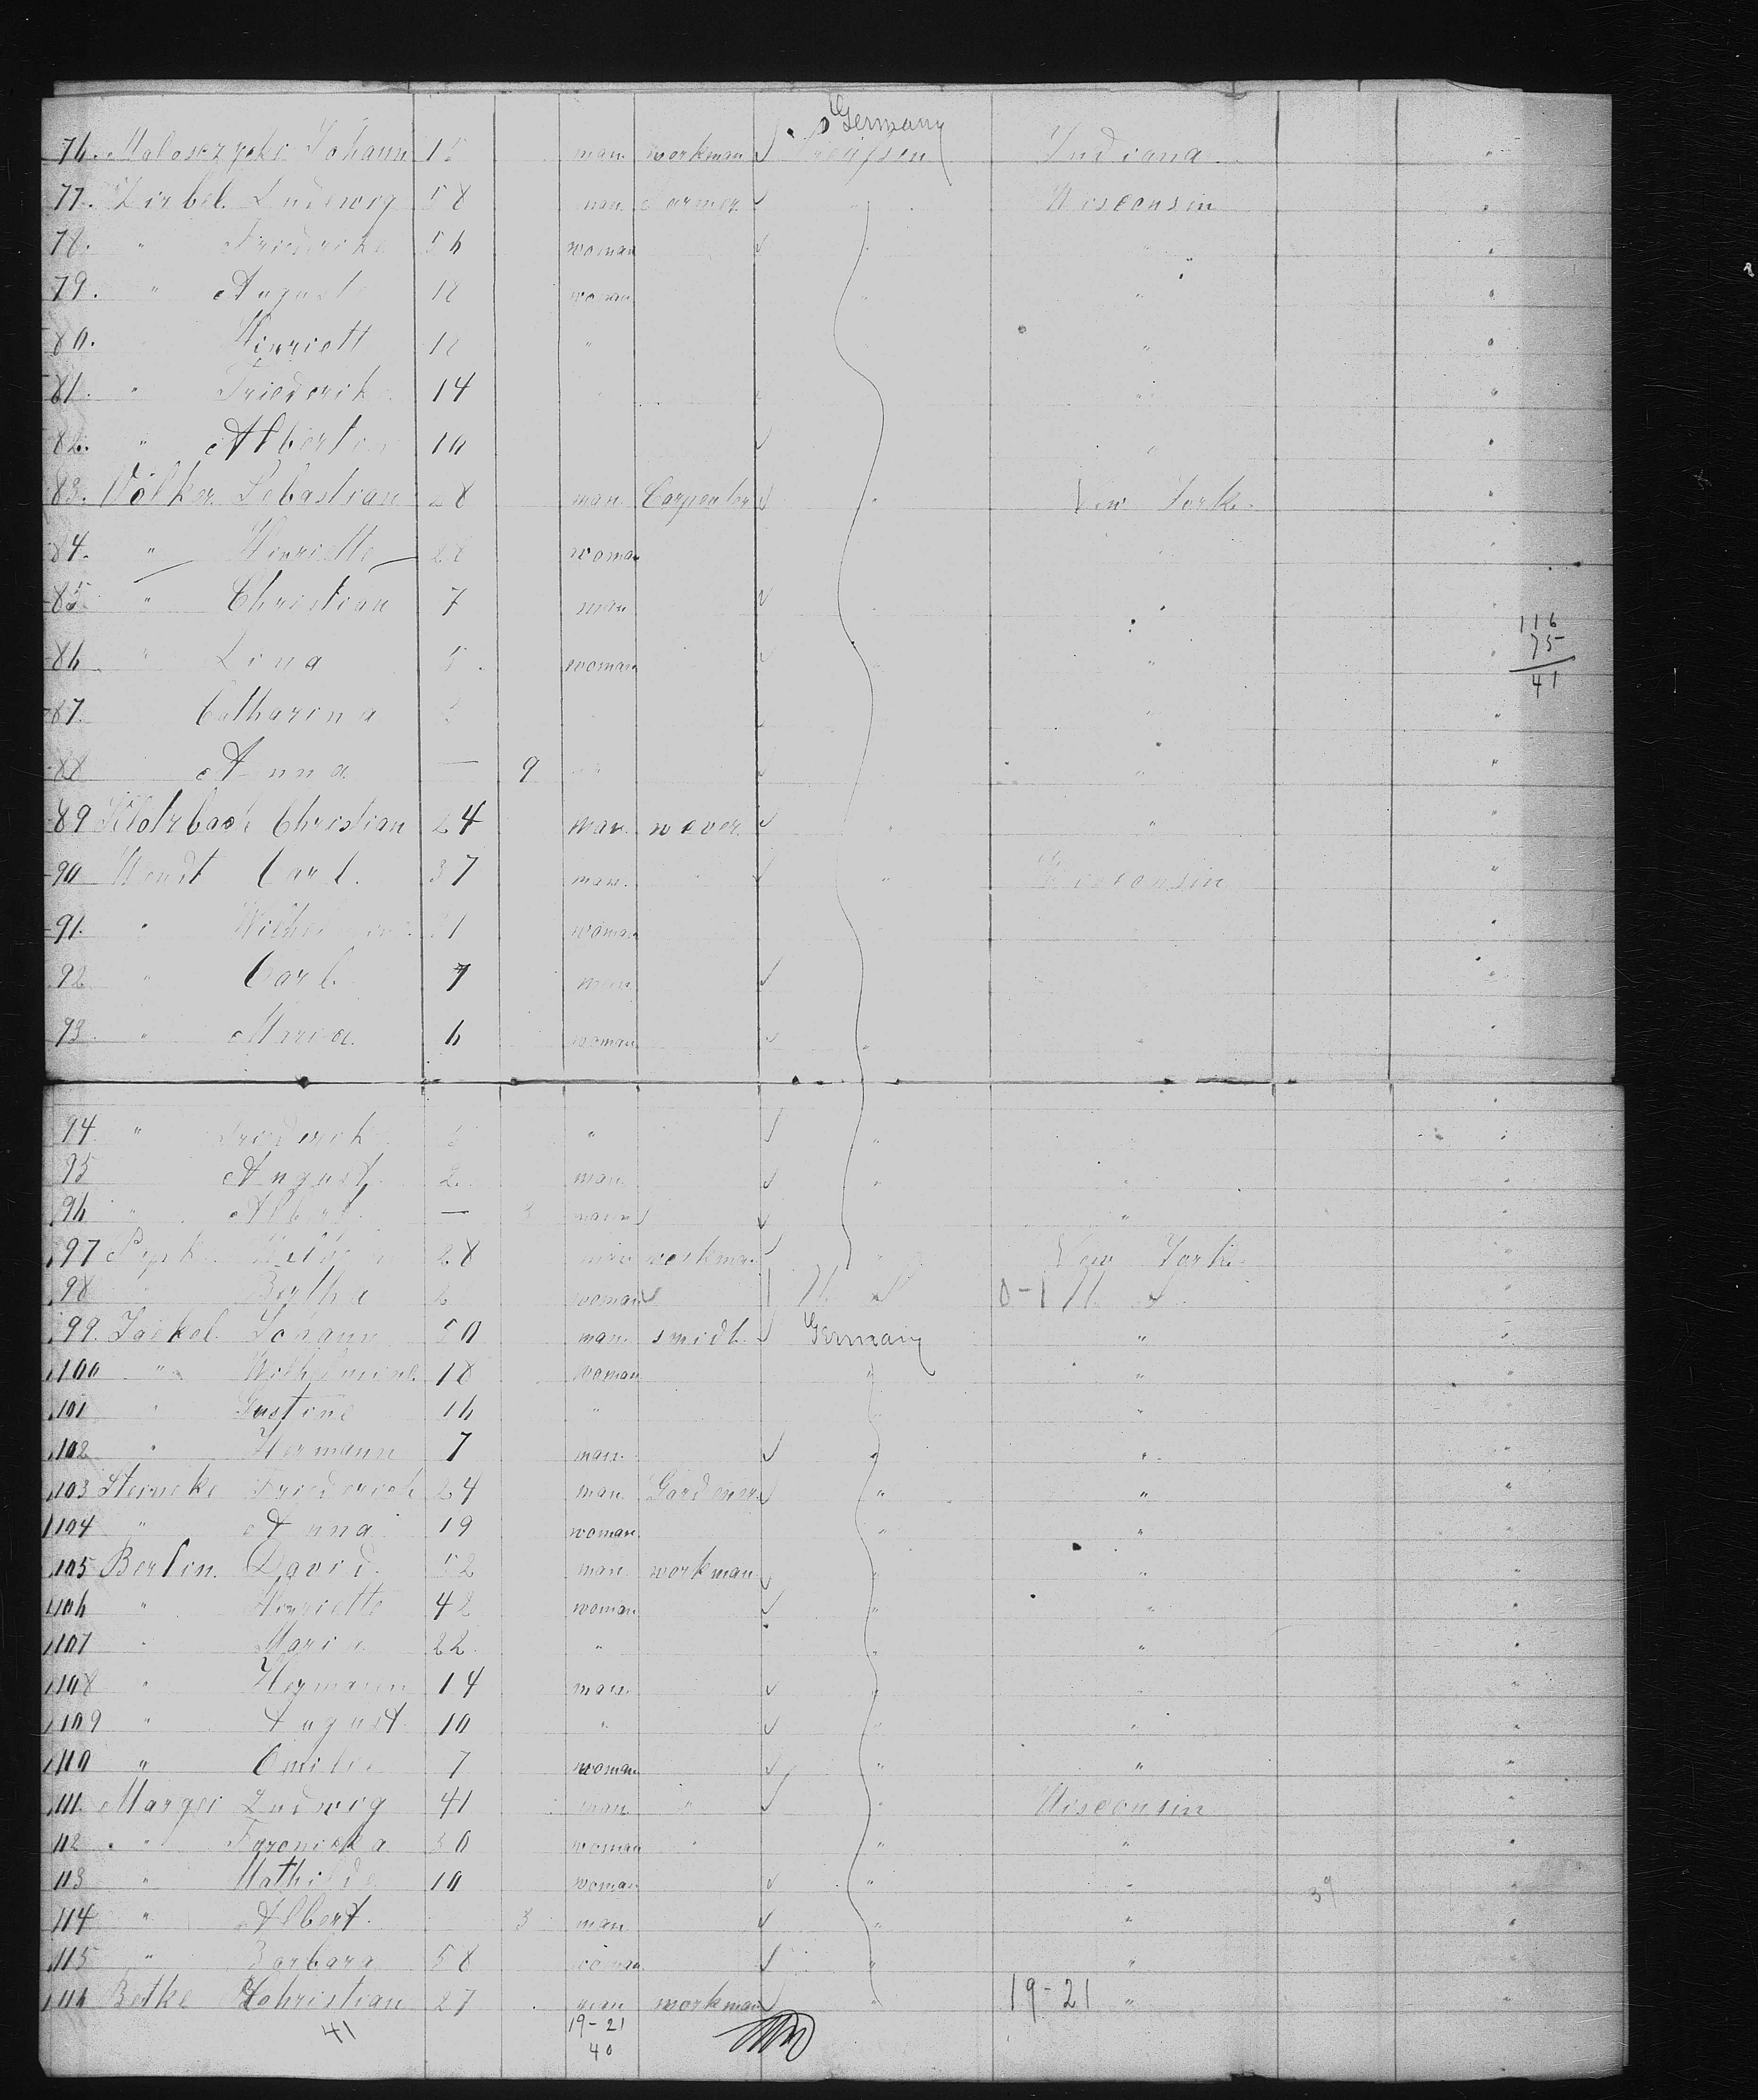 Germany
76. Johann 1 man workman Preussen Indiana "
77. Zirbel Ludwig 58 man farmer " Wisconsin "
78. " Friedericke 56 woman " " "
79. " Auguste 18 woman " " "
80. " Henriett 18 " " "
81. " Friederick 14 " " "
82. " Albert 10 " "
83. Völker Sebastian 28 man Carpenter " New York "
84. " Henriette 28 woman "
85. " Christian 7 man " "
86. " Lina 5 woman " "
87. Catharina " "
88 Anna — 9 " " "
89 Christian 24 man wever " " "
90 Wendt Carl 37 man " " Wisconsin "
91. " woman "
92 " Carl. 7 man "
93. " Maria 6 woman " "
116
75
41
94 " Friederich " "
95 August 2 man " "
96 " Albert — man "
97 28 man workman " New York
98 Bertha woman 0-1
99. Jaekel Johann 50 man smidt Germany " "
100 " Wilhelmine 18 woman " " "
101 " Justine 16 " " "
102 " Hermann 7 man " "
103 Steincke Friederich 24 man Gardener " " "
104 " Anna 19 woman " " "
105 Berlin David 52 man workman " " "
106 " Henriette 42 woman " " "
107 " Marie 22 " " " "
108 " Hermann 14 man " " "
109 " August 10 " " " "
110 " Emilie 7 woman " " "
111. Ludwig 41 man " " Wisconsin "
112 " 30 woman " " " "
113 " Mathilde 10 woman " " 39 "
114 " Albert. 3 man " " "
115 " Barbara 58 woman " " "
116 Betke Christian 27 man workman " 19-21 " "
41 19-21
40